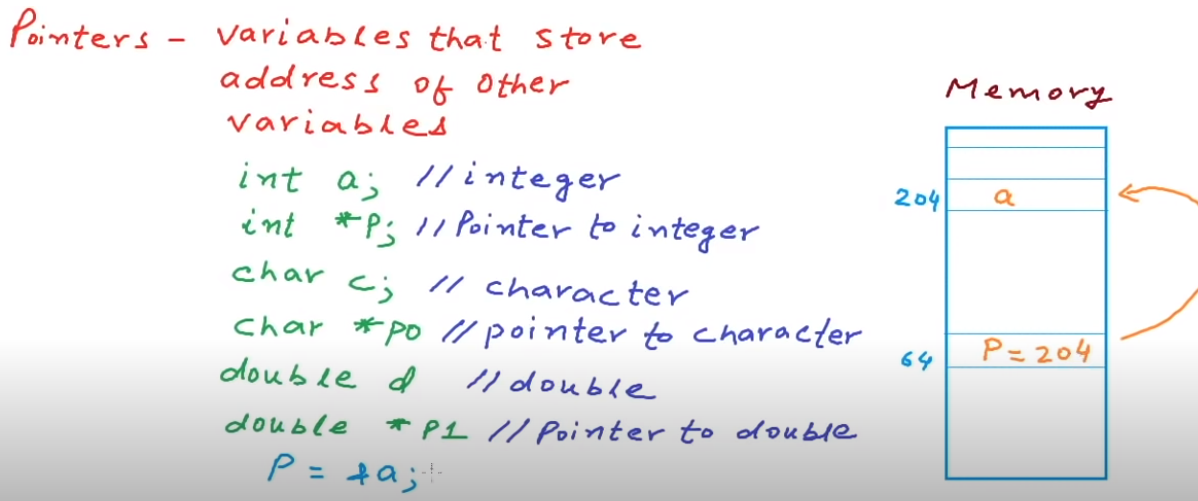 Pointers - variables that store
address of other
variables
int a; // integer
int *P; // Pointer to integer
char c; // character
char *po // pointer to character
double d // double
double *P1 // Pointer to double
P = &a;
Memory
204 a
64 P = 204